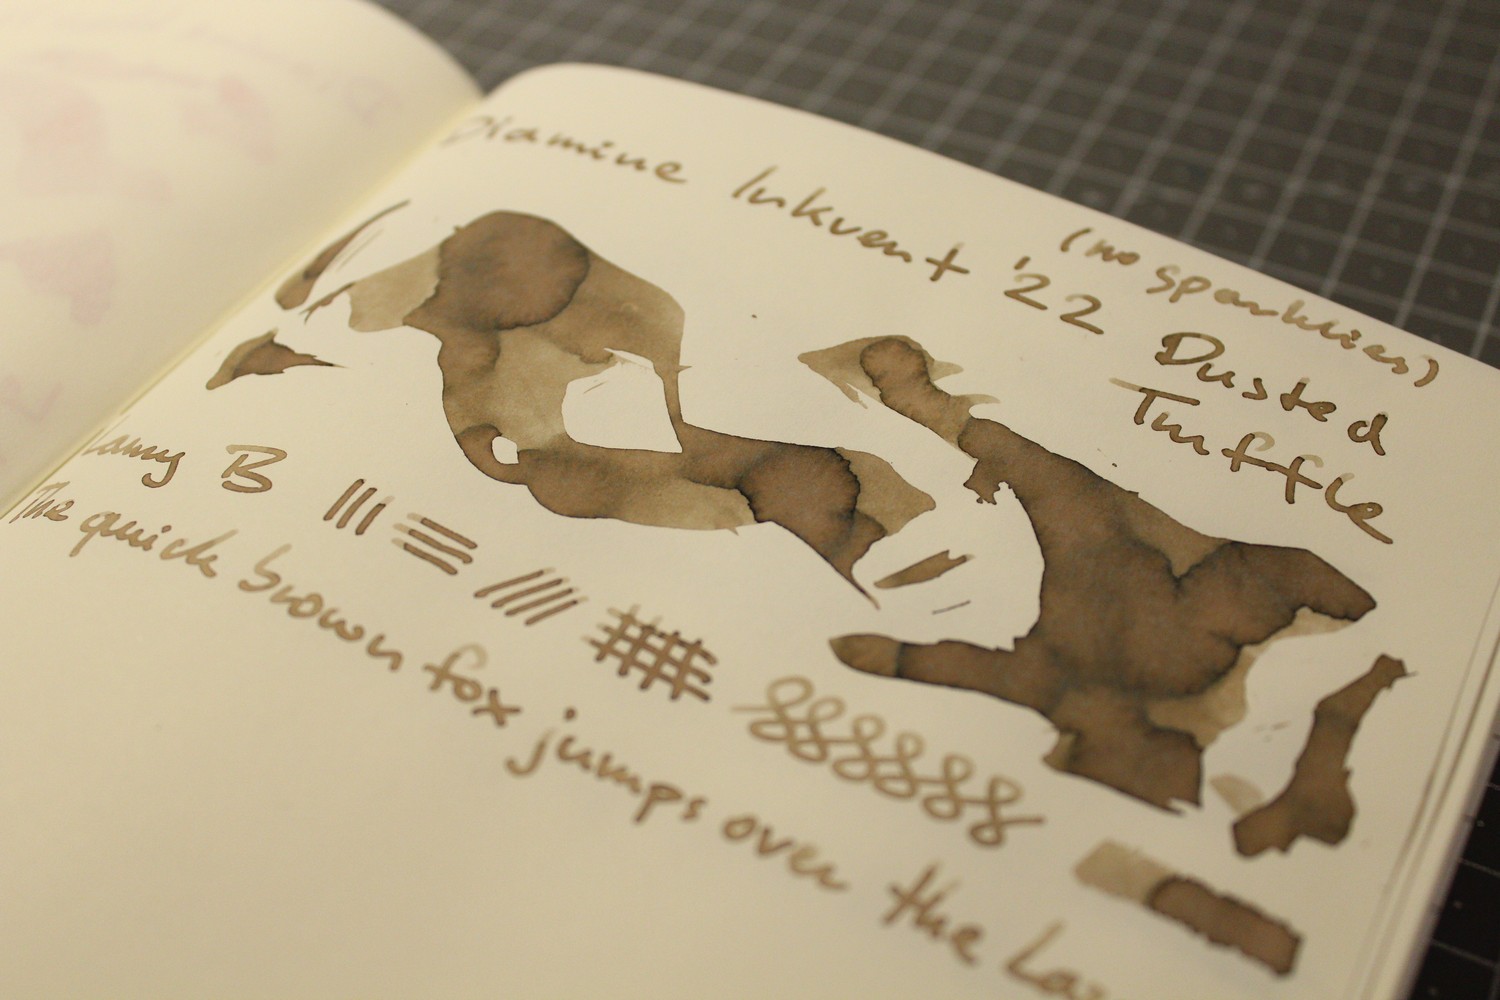 Diamine Inkvent '22 Dusted
Truffle
(no sparklies)
Lamy B
The quick brown fox jumps over the Laz